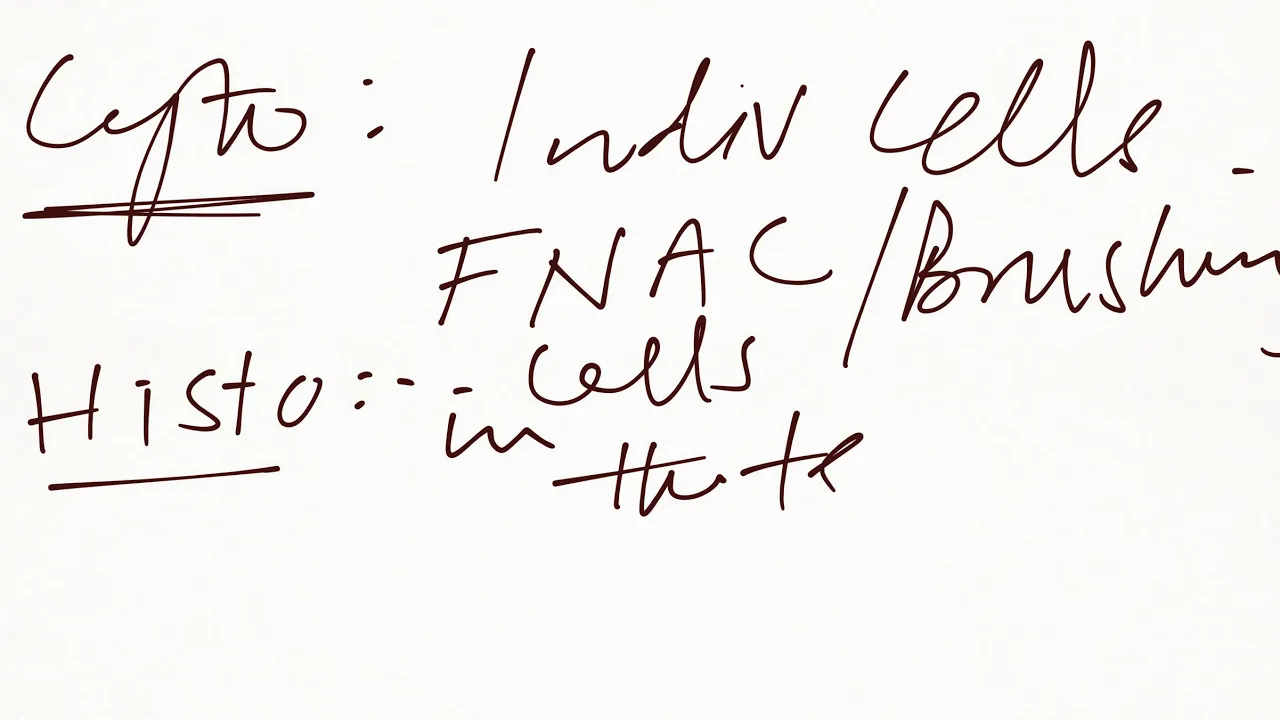 Cyto: Indiv Cells -
FNAC/Brushing
Histo:- - Cells
in
the te